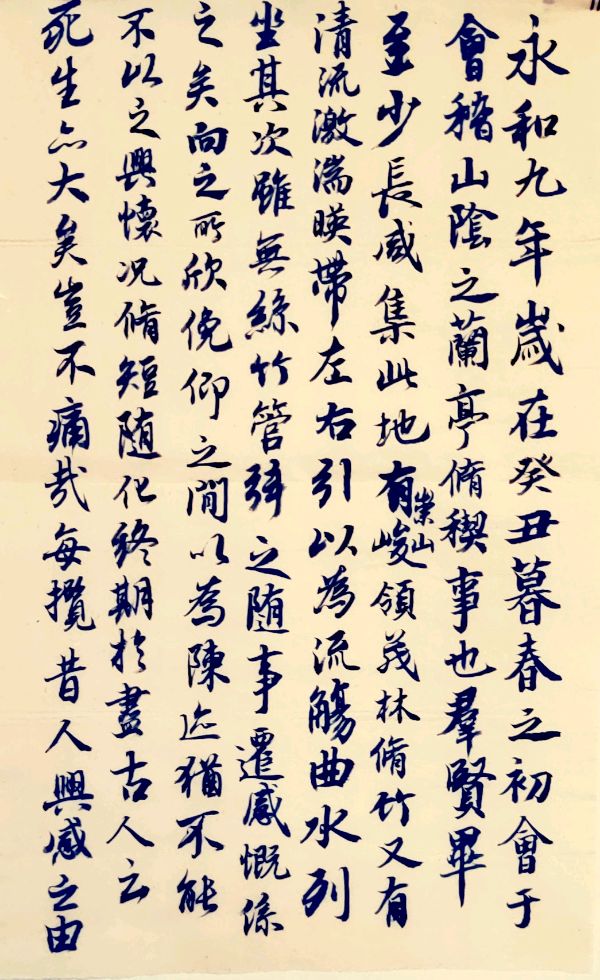 永和九年歲在癸丑暮春之初會于
會稽山陰之蘭亭脩稧事也羣賢畢
至少長咸集此地有崇山峻領茂林脩竹又有
清流激湍暎帶左右引以為流觴曲水列
坐其次雖無絲竹管弦之随事遷感慨係
之矣向之所欣俛仰之閒以為陳迹猶不能
不以之興懷况脩短随化終期於盡古人云
死生亦大矣豈不痛哉每攬昔人興感之由